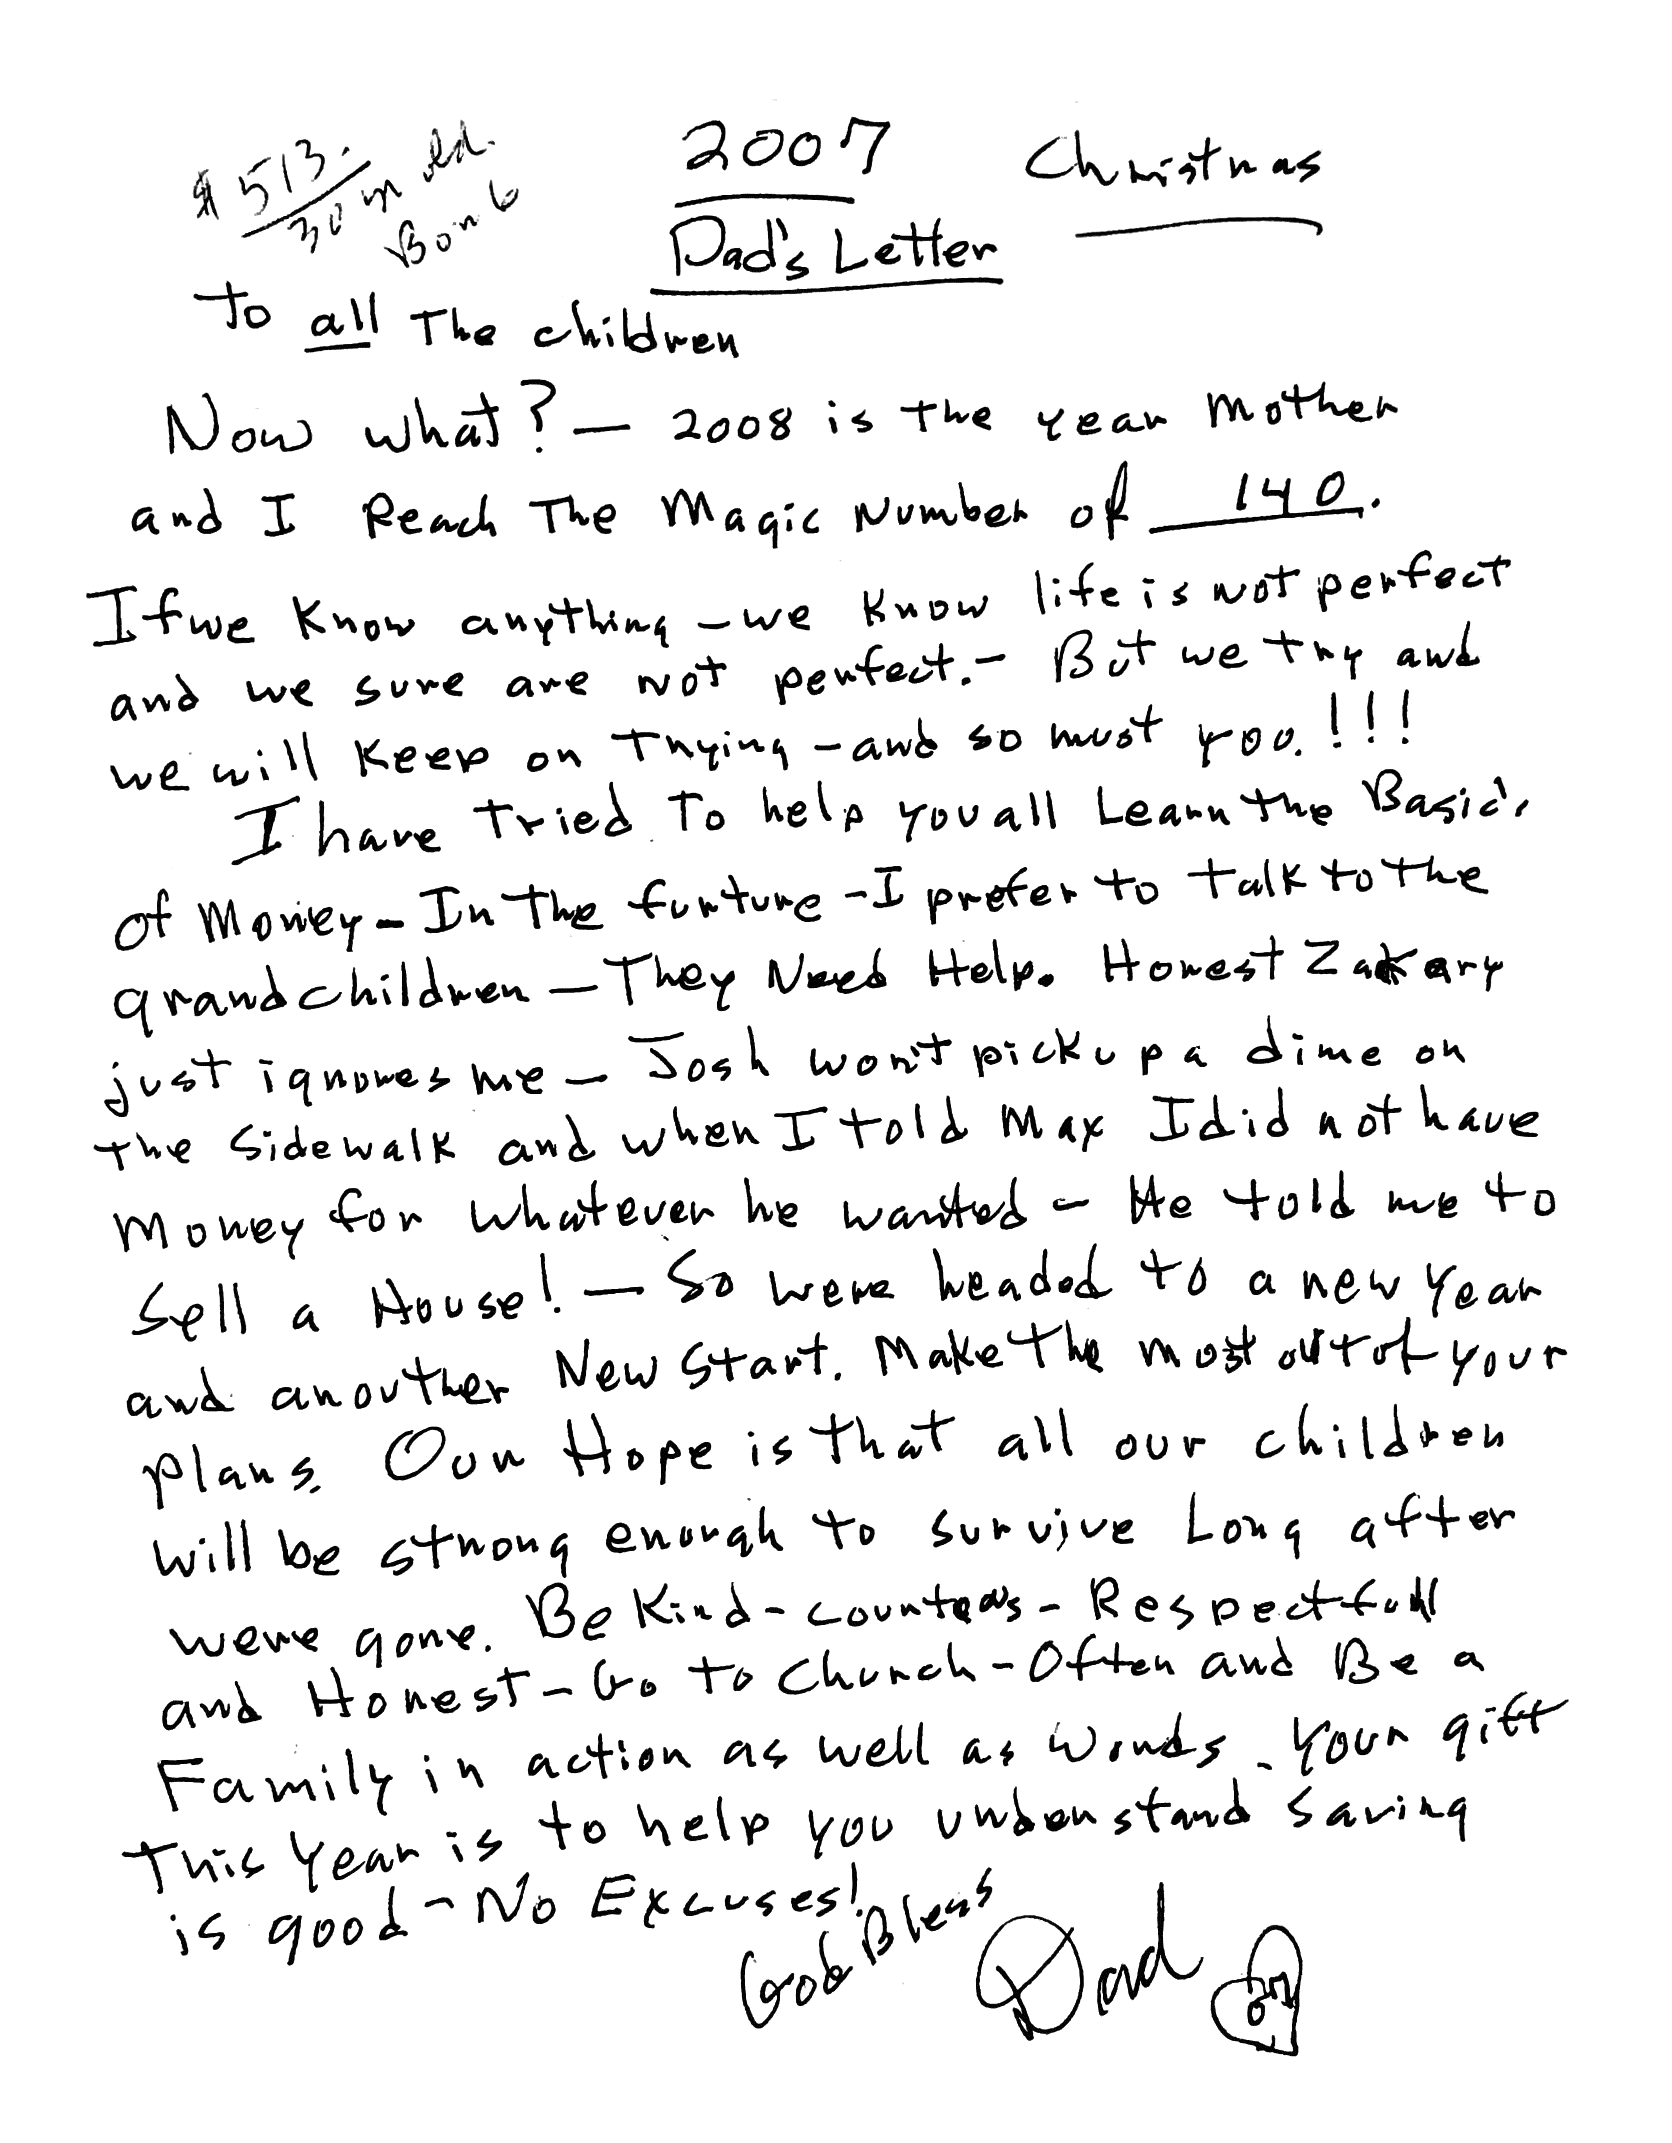 2007 Christmas
$513.
30 yr
Dad's Letter
To all The children
Now what? — 2008 is the year Mother
and I Reach The Magic Number of 140.
If we Know anything - we Know life is not perfect
and we sure are not perfect. - But we try and
we will Keep on Trying - and so must you. !!!
I have Tried To help you all Learn the Basic's
of Money - In The furture - I prefer to talk to the
grandchildren — They Need Help. Honest Zakary
just ignores me — Josh won't pick up a dime on
the Sidewalk and when I told Max I did not have
Money for whatever he wanted - He told me to
Sell a House! — So were headed to a new Year
and anouther New Start. Make The most out of your
plans. Our Hope is that all our children
will be strong enough to survive Long after
were gone. Be Kind - Counteos - Respectfull
and Honest - Go To Church - Often and Be a
Family in action as well as Words. Your gift
This Year is to help you understand Saving
is good - No Excuses!
God Bless
Dad